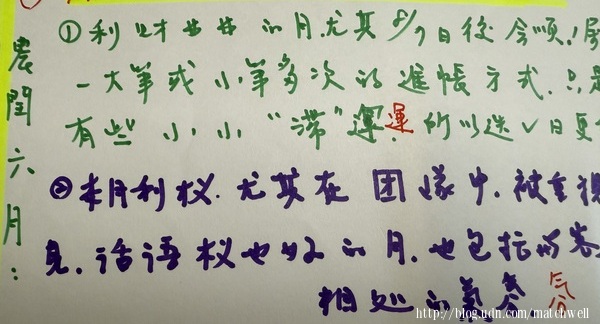 農閏六月:
①利財 的月.尤其8/7日後会順!屬
一大筆或小筆多次的進帳方式.只是
有些小小"滞"運運.所以选√日更
②本月利权.尤其在团隊中.被重視
見.话语权也好的月.也包括与客
相处的氣氛.气分
http://blog.udn.com/matchwell